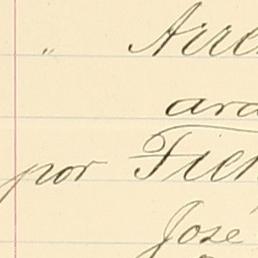 " Arre
ara
por Fier
José